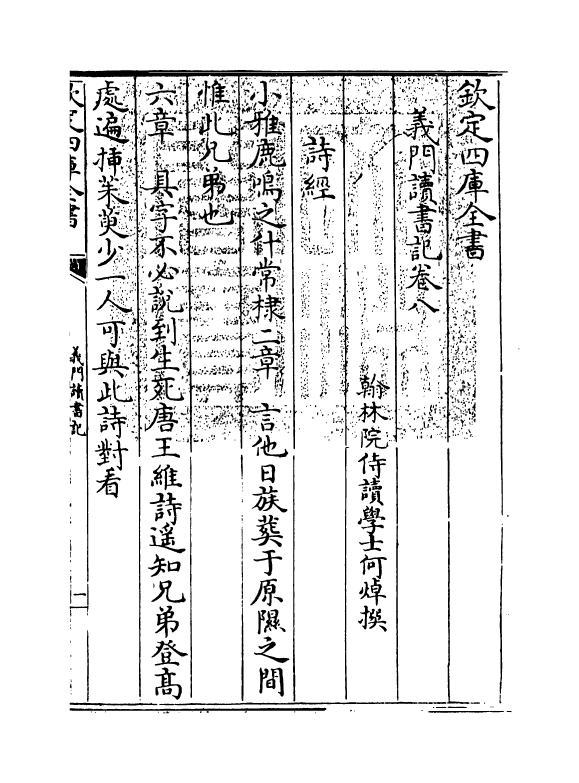 欽定四庫全書
義門讀書記卷八
翰林院侍讀學士何焯撰
詩經
小雅鹿鳴之什常棣二章　言他日族葬于原隰之間
惟此兄弟也
六章　具字不必說到生死唐王維詩遥知兄弟登高
處遍揷茱萸少一人可與此詩對看
欽定四庫全書
義門讀書記
一